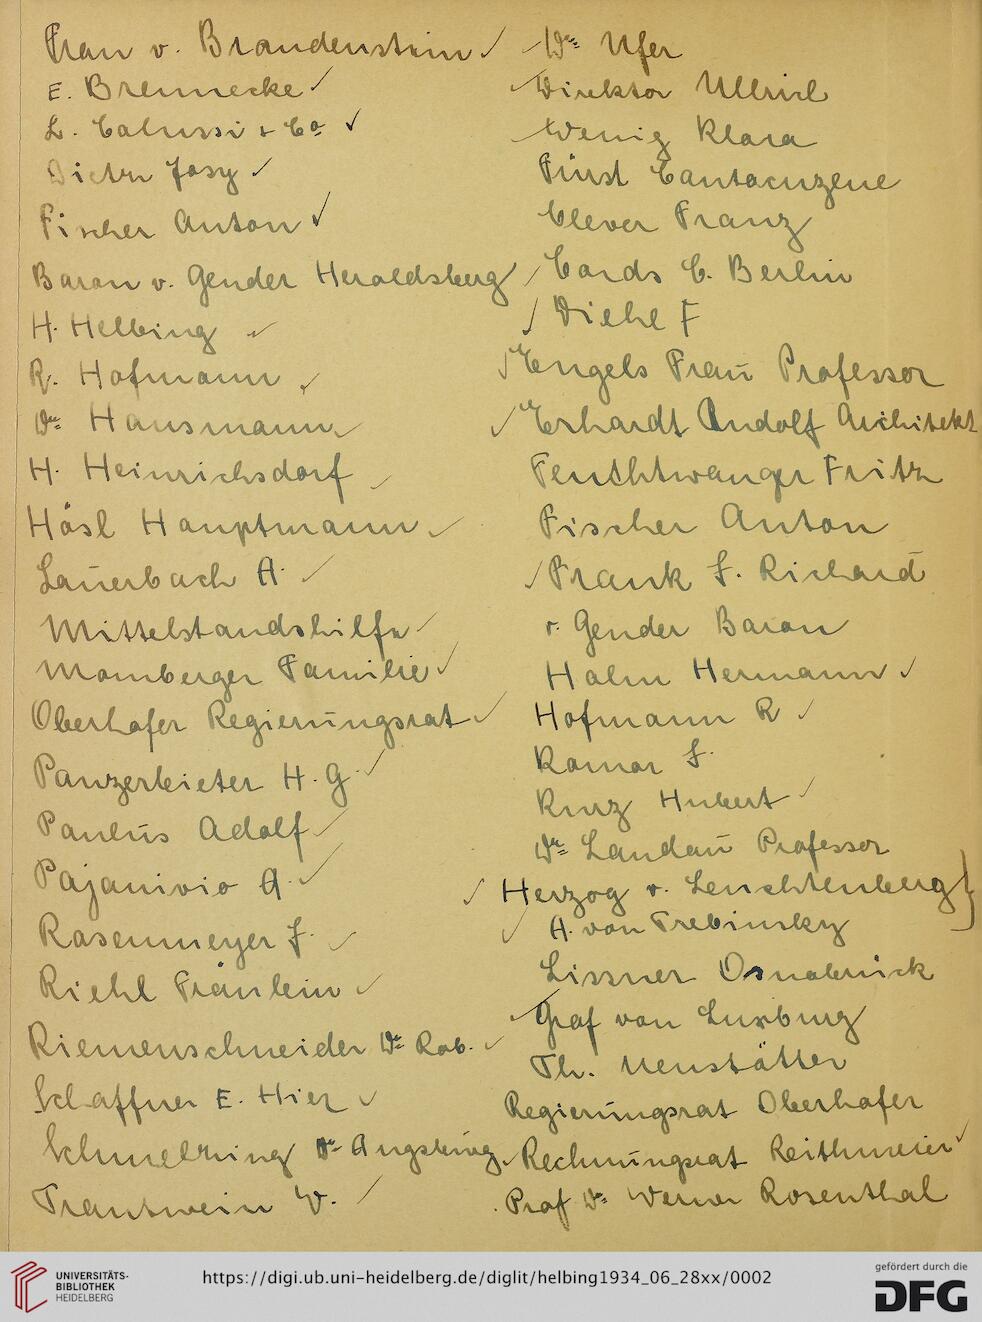 Frau v. Brandenstein ✓
E. Brennecke ✓
L. Calussi & Co ✓
Dietz Josy ✓
Fischer Anton ✓
Baron v. Gender Heroldsberg ✓
H. Helbing ✓
R. Hofmann ✓
Dr. Hausmann ✓
H. Heinrichsdorf ✓
Hösl Hauptmann ✓
Lauerbach A. ✓
Mittelstandshilfe ✓
Momberger Familie ✓
Oberhofer Regierungsrat ✓
Panzerbieter H. G. ✓
Paulus Adolf ✓
A. ✓
Rasenmeyer J. ✓
Riehl Fräulein ✓
Riemenschneider Dr. Rob. ✓
Schaffner E. Hier ✓
Dr. Augsburg
Trautwein W. ✓
✓ Dr. Ufer
✓ Direktor Ullrich
✓ Wenig Klara
Fürst Cantacuzene
Clever Franz
✓ Cords C. Berlin
✓ Diehl F
✓ Engels Frau Professor
✓ Erhardt Rudolf Architekt
Feuchtwanger Fritz
Fischer Anton
✓ Frank J. Richard
v. Gender Baron
Halm Hermann ✓
Hofmann R ✓
Komor J.
Kunz Hubert ✓
Dr. Landau Professor
✓ Herzog v. Leuchtenberg
✓ A. von Trebinsky
Lissner Osnabrück
✓ Graf von Luxburg
Th. Neustätter
Regierungsrat Oberhofer
Rechnungsrat Reithmeier ✓
Prof Dr. Werner Rosenthal
UNIVERSITÄTS-
BIBLIOTHEK
HEIDELBERG
https://digi.ub.uni-heidelberg.de/diglit/helbing1934_06_28xx/0002
gefördert durch die
DFG